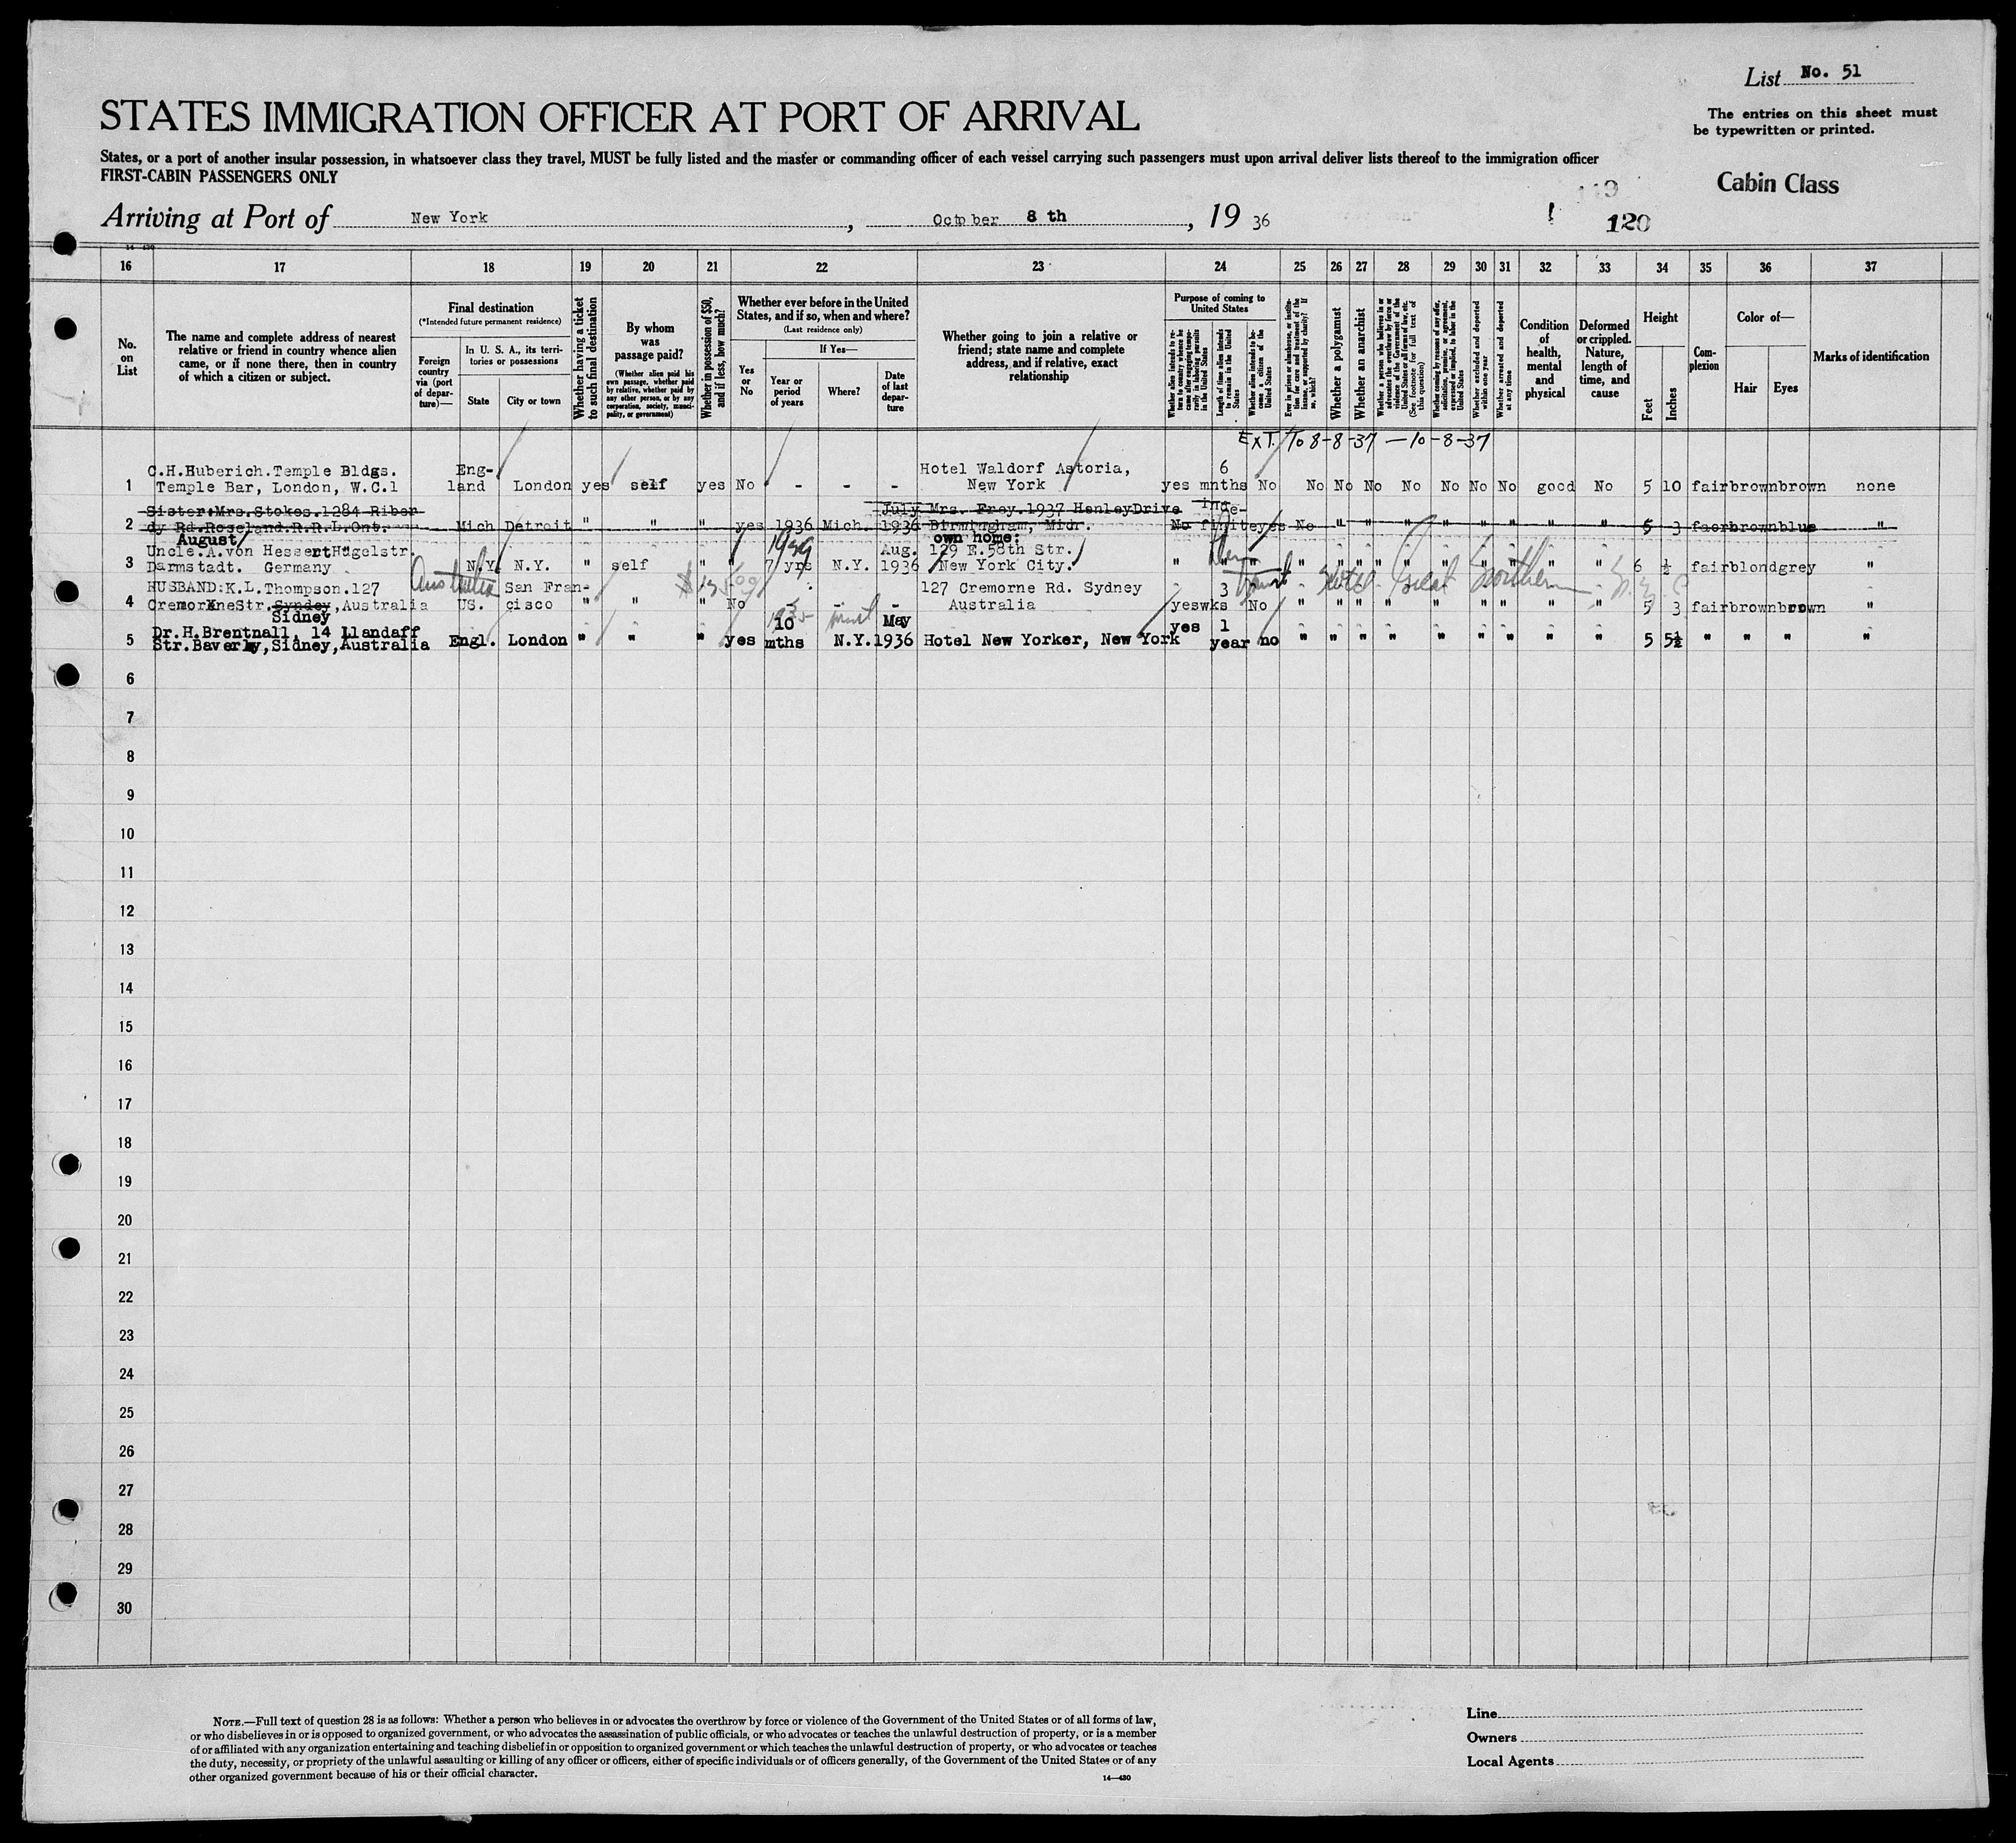 List No. 51
STATES IMMIGRATION OFFICER AT PORT OF ARRIVAL
The entries on this sheet must
be typewritten or printed.
States, or a port of another insular possession, in whatsoever class they travel, MUST be fully listed and the master or commanding officer of each vessel carrying such passengers must upon arrival deliver lists thereof to the immigration officer
FIRST-CABIN PASSENGERS ONLY
Cabin Class
Arriving at Port of New York, October 8 th, 19 36
120
16 17 18 19 20 21 22 23 24 25 26 27 28 29 30 31 32 33 34 35 36 37
No.
on
List
The name and complete address of nearest
relative or friend in country whence alien
came, or if none there, then in country
of which a citizen or subject.
Final destination
(*Intended future permanent residence)
Foreign
country
via (port
of depar-
ture)—
In U. S. A., its terri-
tories or possessions
State
City or town
Whether having a ticket
to such final destination
By whom
was
passage paid?
(Whether alien paid his
own passage, whether paid
by relative, whether paid by
any other person, or by any
corporation, society, munici-
pality, or government)
Whether in possession of $50,
and if less, how much?
Whether ever before in the United
States, and if so, when and where?
(Last residence only)
Yes
or
No
If Yes—
Year or
period
of years
Where?
Date
of last
depar-
ture
Whether going to join a relative or
friend; state name and complete
address, and if relative, exact
relationship
Purpose of coming to
United States
Whether alien intends to re-
turn to country whence he
came after engaging tempo-
rarily in laboring pursuits
in the United States
Length of time alien intends
to remain in the United
States
Whether alien intends to be-
come a citizen of the
United States
Ever in prison or almshouse, or institu-
tion for care and treatment of the
insane, or supported by charity? If
so, which?
Whether a polygamist
Whether an anarchist
Whether a person who believes in or
advocates the overthrow by force or
violence of the Government of the
United States or all forms of law, etc.
(See footnote for full text of
this question)
Whether coming by reasons of any offer,
solicitation, promise, or agreement,
expressed or implied, to labor in the
United States
Whether excluded and deported
within one year
Whether arrested and deported
at any time
Condition
of
health,
mental
and
physical
Deformed
or crippled.
Nature,
length of
time, and
cause
Height
Feet
Inches
Com-
plexion
Color of—
Hair
Eyes
Marks of identification
EXT. To 8-8-37 — 10-8-37
C.H.Huberich.Temple Bldgs. Eng- Hotel Waldorf Astoria, 6
1 Temple Bar, London, W.C.1 land London yes self yes No - - - New York yes mnths No No No No No No No No good No 5 10 fair brown brown none
Sister:Mrs.Stokes.1284 Riber July Mrs. Frey.1937 HenleyDrive Inde-
2 dy Rd.Roseland.R.R.L.Ont. Mich Detroit " " " yes 1936 Mich. 1936 Birmingham, Mich. No finite yes No " " " " " " " " 5 3 faer brown blue "
August 1929 own home:
Uncle.A.von Hessert Hügelstr. Aug. 129 E.58th Str.
3 Darmstadt. Germany N.Y. N.Y. " self " " 7 yrs N.Y. 1936 New York City. " " " " " " " " " " " " 6 ½ fair blond grey "
HUSBAND:K.L.Thompson.127 Australia San Fran- 127 Cremorne Rd. Sydney 3 Transit Hotel Great Northern
4 CremorXneStr.Syndey,Australia US. cisco " " " No - - - Australia yes wks No " " " " " " " " " 5 3 fair brown brown "
Sidney 10 May
Dr.H.Brentnall, 14 Llandaff yes 1
5 Str.Baverly,Sidney,Australia Engl. London " " " yes mths N.Y. 1936 Hotel New Yorker, New York year no " " " " " " " " " 5 5½ " " " "
6
7
8
9
10
11
12
13
14
15
16
17
18
19
20
21
22
23
24
25
26
27
28
29
30
NOTE.—Full text of question 28 is as follows: Whether a person who believes in or advocates the overthrow by force or violence of the Government of the United States or of all forms of law,
or who disbelieves in or is opposed to organized government, or who advocates the assassination of public officials, or who advocates or teaches the unlawful destruction of property, or is a member
of or affiliated with any organization entertaining and teaching disbelief in or opposition to organized government or which teaches the unlawful destruction of property, or who advocates or teaches
the duty, necessity, or propriety of the unlawful assaulting or killing of any officer or officers, either of specific individuals or of officers generally, of the Government of the United States or of any
other organized government because of his or their official character.
14—430
Line
Owners
Local Agents